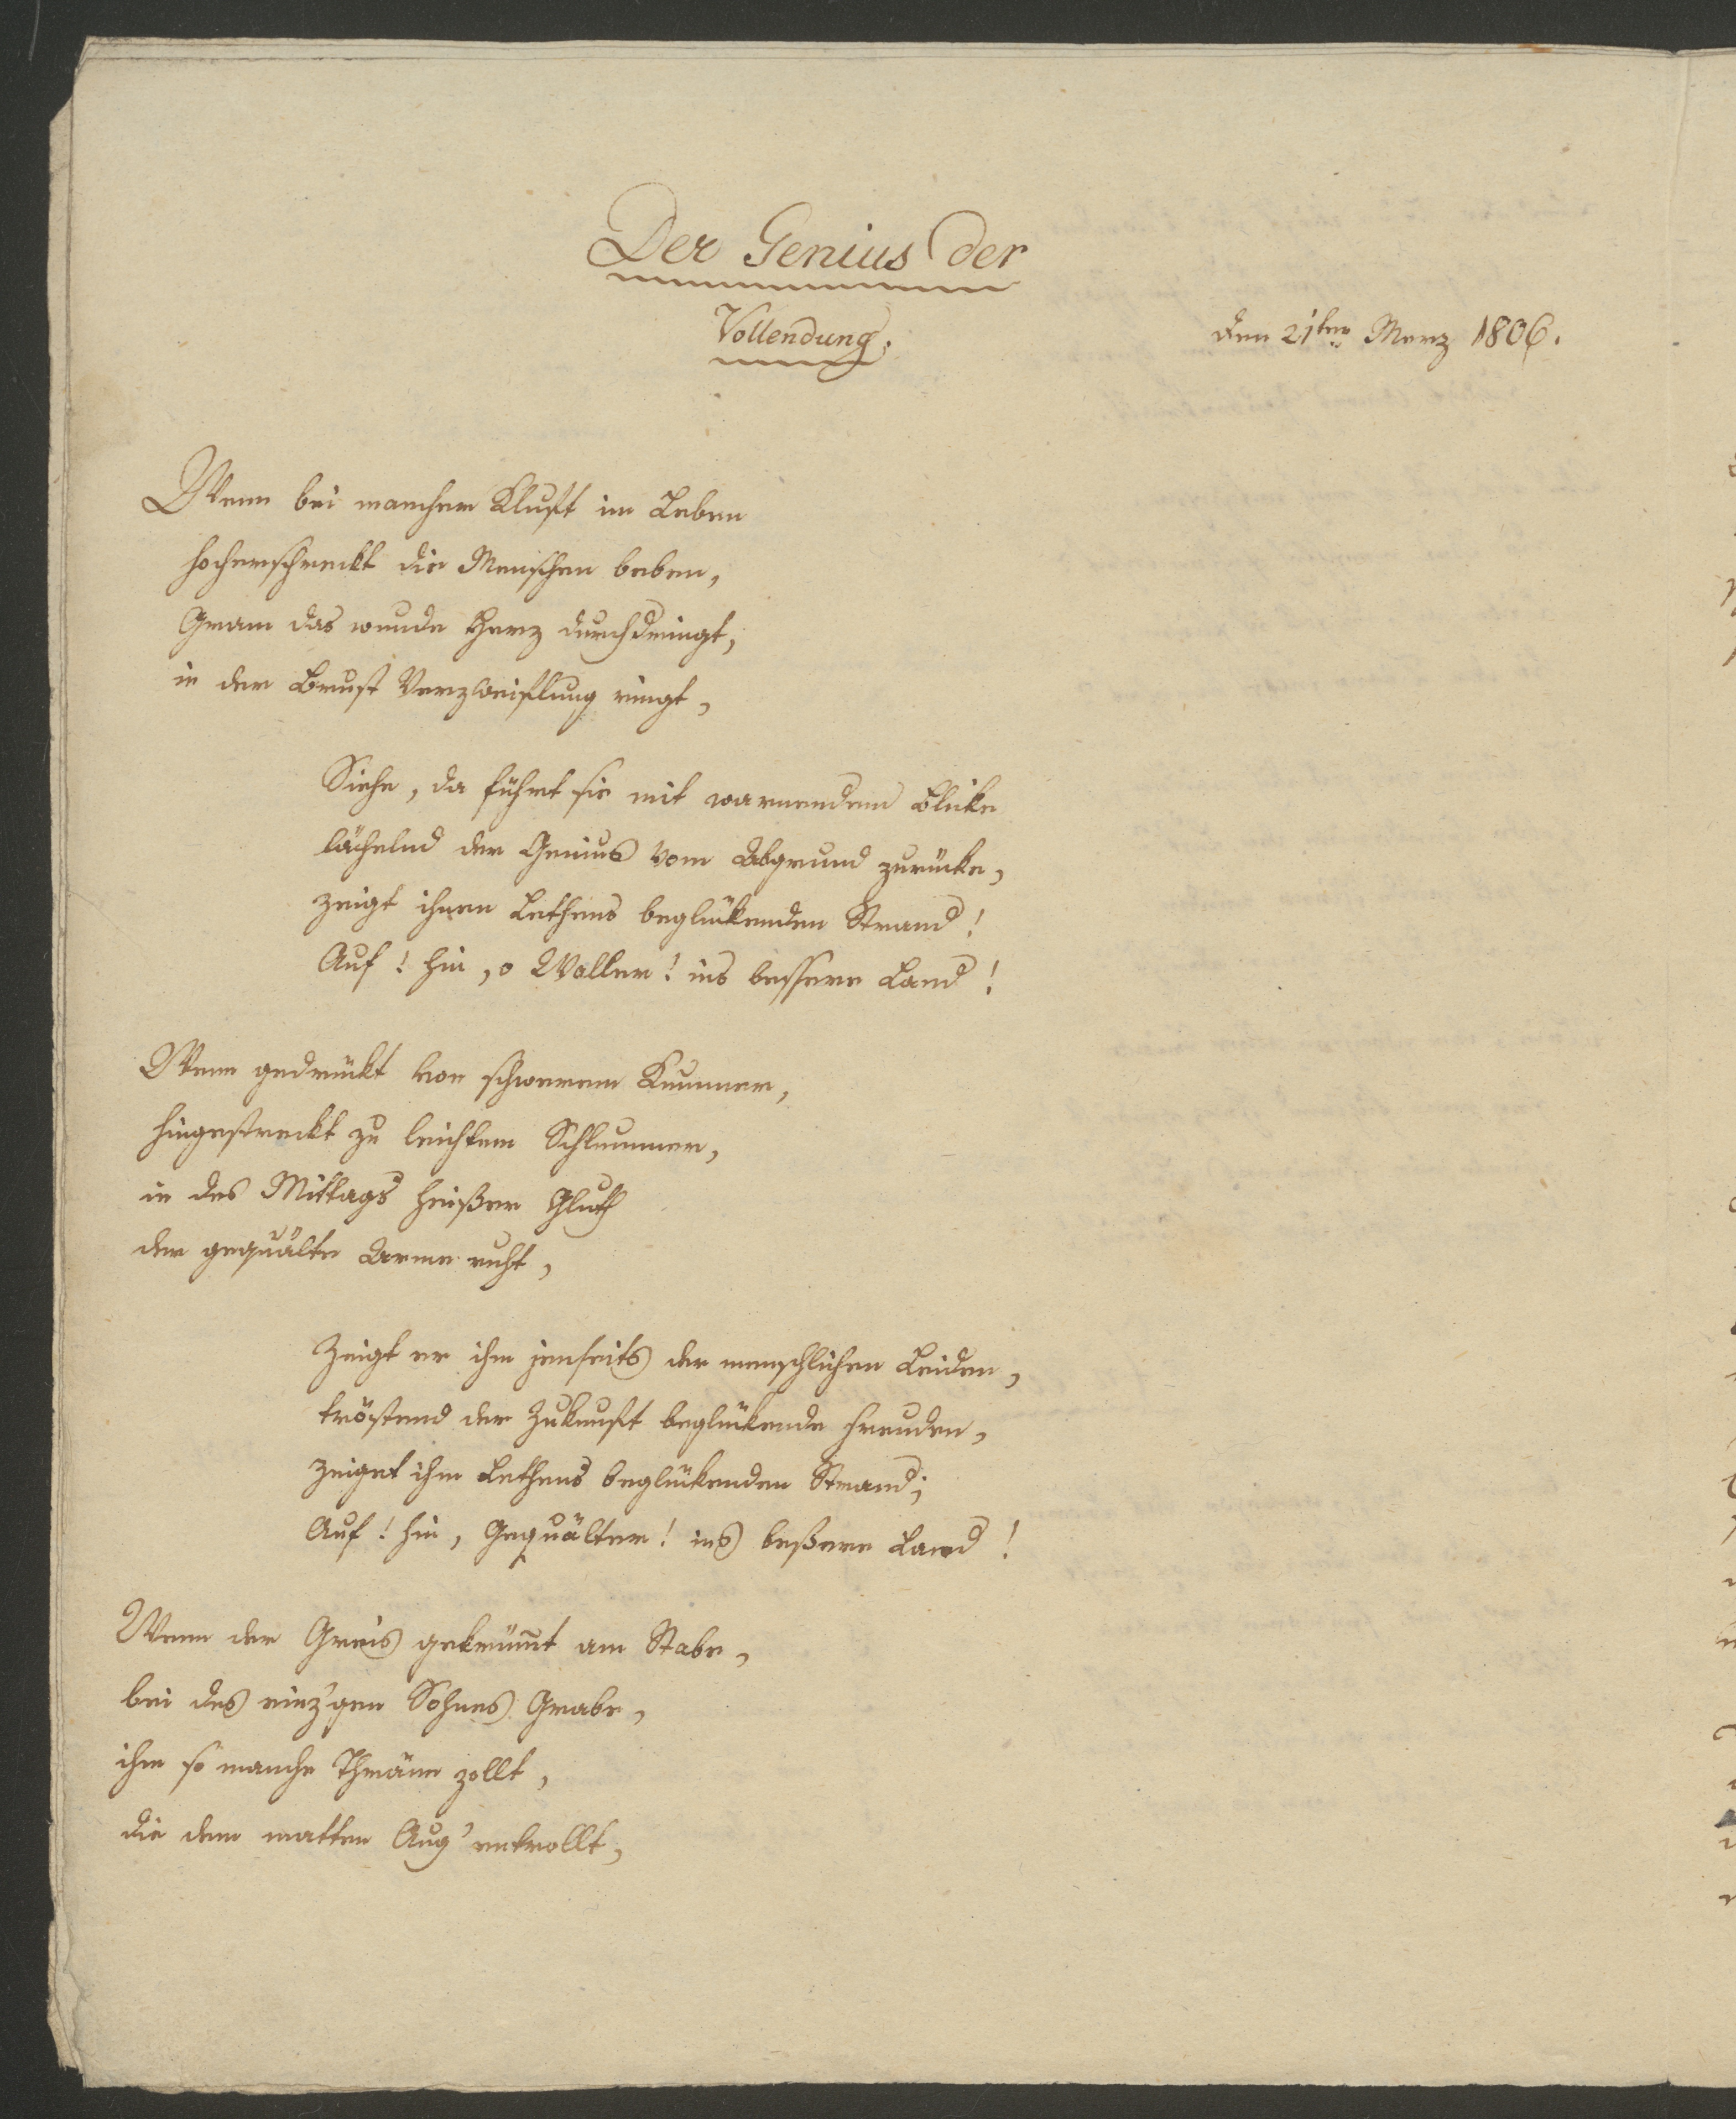 Der Genius der
Vollendung.
Den 21ten Merz 1806.
Wenn bei mancher Kluft im Leben
hocherschreckt die Menschen beben,
Gram das wunde Herz durchdringt,
in der Brust Verzweiflung ringt,
Siehe, da führt sie mit warnendem Blicke
lächelnd der Genius vom Abgrund zurücke,
zeigt ihnen Lethens beglückenden Strand!
Auf! hin, o Waller! ins bessere Land!
Wenn gedrückt von schwerem Kummer,
hingestreckt zu leichtem Schlummer,
in des Mittags heißer Gluth
der gequälte Arme ruht,
Zeigt er ihm jenseits der menschlichen Leiden,
tröstend der Zukunft beglückende Freuden,
zeiget ihm Lethens beglückenden Strand;
Auf! hin, Gequälter! ins beßere Land!
Wenn der Greis gekrüm̅t am Stabe,
bei des einz'gen Sohnes Grabe,
ihm so manche Thräne zollt,
die dem matten Aug' entrollt,